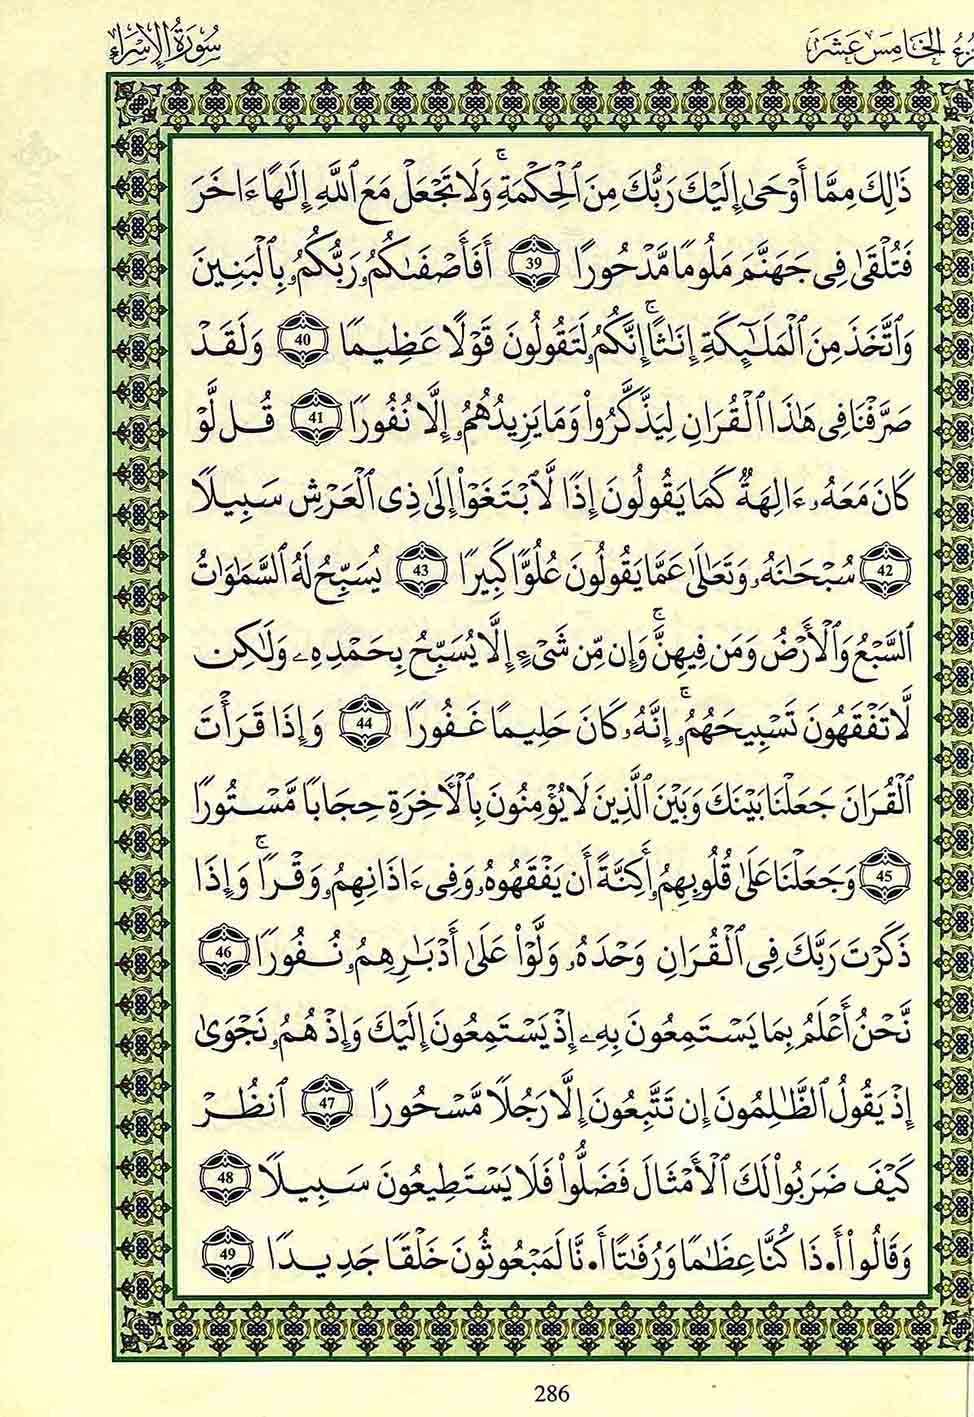 الجُزْءُ الخَامِسَ عَشَرَ سُورَةُ الإِسْرَاءِ
ذَٰلِكَ مِمَّا أَوْحَىٰ إِلَيْكَ رَبُّكَ مِنَ ٱلْحِكْمَةِ ۚ وَلَا تَجْعَلْ مَعَ ٱللَّهِ إِلَٰهًا ءَاخَرَ
فَتُلْقَىٰ فِى جَهَنَّمَ مَلُومًا مَّدْحُورًا 39 أَفَأَصْفَىٰكُمُۥ رَبُّكُمُۥ بِٱلْبَنِينَ
وَٱتَّخَذَ مِنَ ٱلْمَلَٰٓئِكَةِ إِنَٰثًا ۚ إِنَّكُمُۥ لَتَقُولُونَ قَوْلًا عَظِيمًا 40 وَلَقَدْ
صَرَّفْنَا فِى هَٰذَا ٱلْقُرَانِ لِيَذَّكَّرُواْ وَمَا يَزِيدُهُمُۥ إِلَّا نُفُورًا 41 قُل لَّوْ
كَانَ مَعَهُۥ ءَالِهَةٌ كَمَا يَقُولُونَ إِذًا لَّٱبْتَغَوْاْ إِلَىٰ ذِى ٱلْعَرْشِ سَبِيلًا
42 سُبْحَٰنَهُۥ وَتَعَٰلَىٰ عَمَّا يَقُولُونَ عُلُوًّا كَبِيرًا 43 يُسَبِّحُ لَهُ ٱلسَّمَٰوَٰتُ
ٱلسَّبْعُ وَٱلْأَرْضُ وَمَن فِيهِنَّ ۚ وَإِن مِّن شَىْءٍ إِلَّا يُسَبِّحُ بِحَمْدِهِۦ وَلَٰكِن
لَّا تَفْقَهُونَ تَسْبِيحَهُمُۥ ۚ إِنَّهُۥ كَانَ حَلِيمًا غَفُورًا 44 وَإِذَا قَرَأْتَ
ٱلْقُرَانَ جَعَلْنَا بَيْنَكَ وَبَيْنَ ٱلَّذِينَ لَا يُؤْمِنُونَ بِٱلْأَخِرَةِ حِجَابًا مَّسْتُورًا
45 وَجَعَلْنَا عَلَىٰ قُلُوبِهِمُۥ أَكِنَّةً أَن يَفْقَهُوهُۥ وَفِىٓ ءَاذَانِهِمُۥ وَقْرًا ۚ وَإِذَا
ذَكَرْتَ رَبَّكَ فِى ٱلْقُرَانِ وَحْدَهُۥ وَلَّوْاْ عَلَىٰ أَدْبَٰرِهِمُۥ نُفُورًا 46
نَّحْنُ أَعْلَمُ بِمَا يَسْتَمِعُونَ بِهِۦ إِذْ يَسْتَمِعُونَ إِلَيْكَ وَإِذْ هُمُۥ نَجْوَىٰ
إِذْ يَقُولُ ٱلظَّٰلِمُونَ إِن تَتَّبِعُونَ إِلَّا رَجُلًا مَّسْحُورًا 47 ٱنظُرْ
كَيْفَ ضَرَبُواْ لَكَ ٱلْأَمْثَالَ فَضَلُّواْ فَلَا يَسْتَطِيعُونَ سَبِيلًا 48
وَقَالُواْ أَ.ذَا كُنَّا عِظَٰمًا وَرُفَٰتًا أَ.نَّا لَمَبْعُوثُونَ خَلْقًا جَدِيدًا 49
286